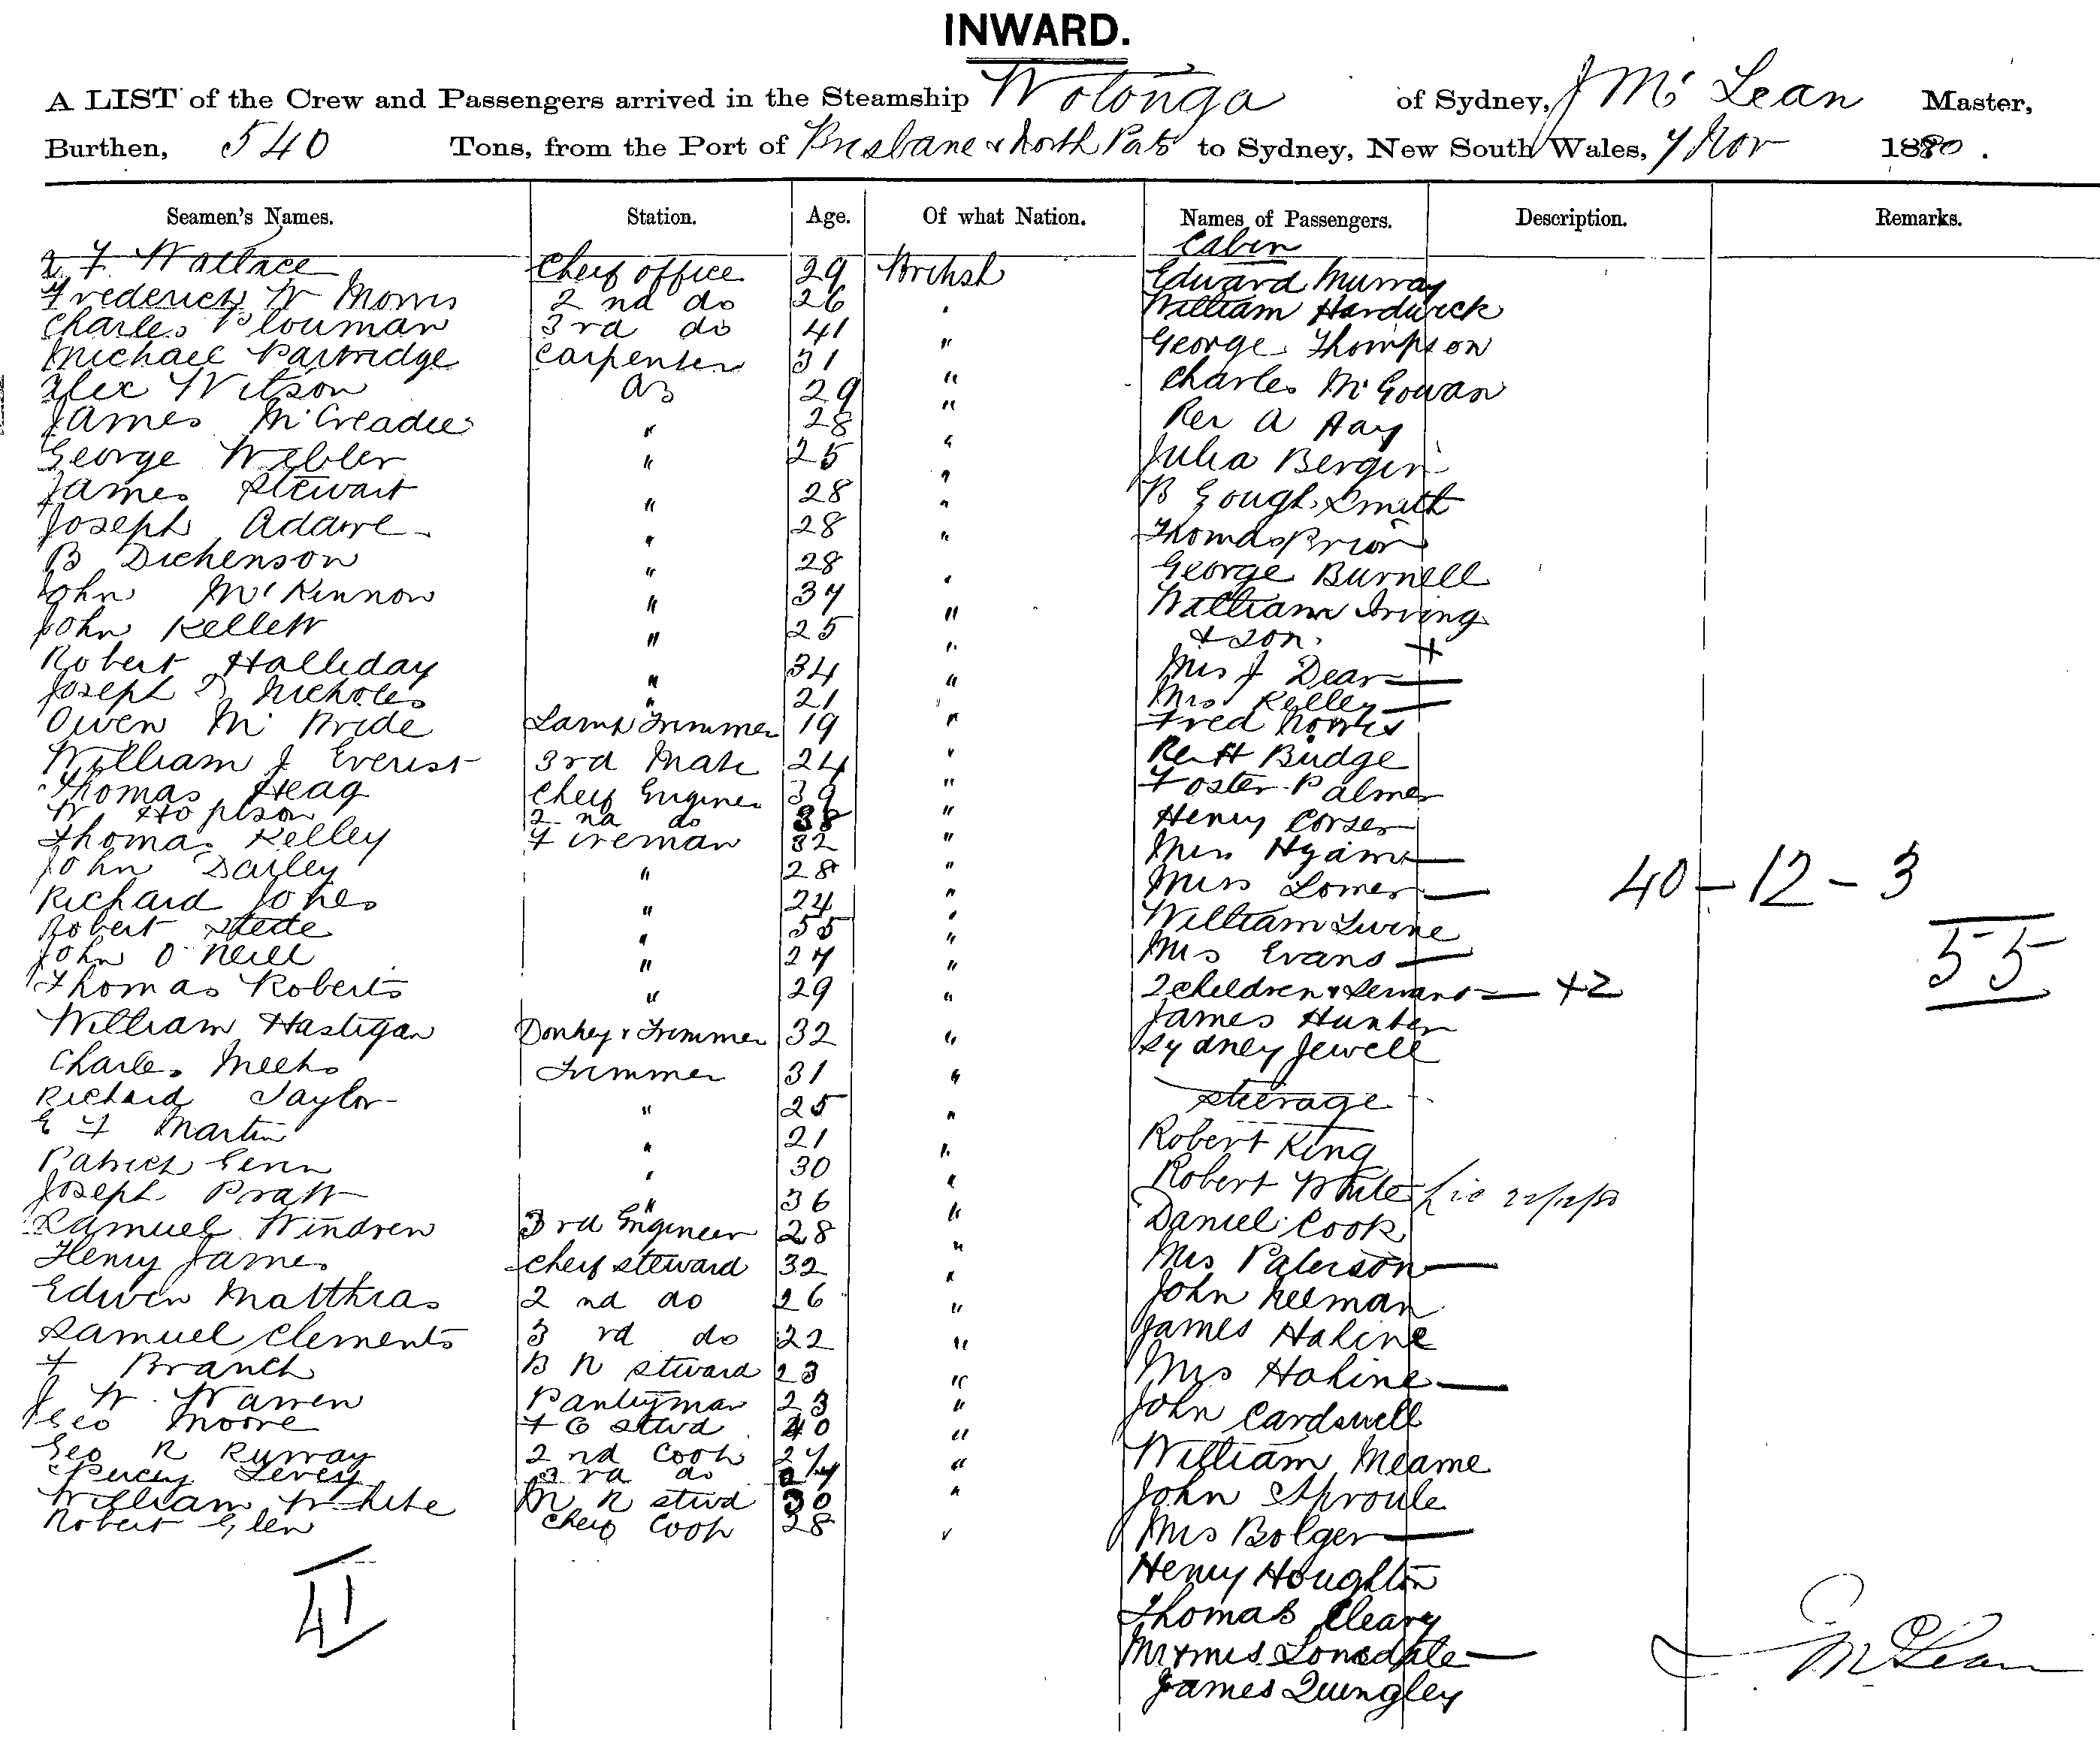 INWARD.
A LIST of the Crew and Passengers arrived in the Steamship Wotonga of Sydney, J Mc Lean Master,
Burthen, 540 Tons, from the Port of Brisbane & North Pats to Sydney, New South Wales, 7 Nov 1880.
Seamen's Names. Station. Age. Of what Nation. Names of Passengers. Description. Remarks.
Cabin
Wallace Cheif office 29 British Edward Murray
Frederick W Morris 2nd do 26 " William Hardwick
Charles Plouman 3rd do 41 " George Thompson
Michael Partridge Carpenter 31 " Charles McGowan
Alex Wilson AB 29 " Rev A Hay
James McCreadie " 28 " Julia Bergin
George Webler " 25 " B Gough Smith
James Stewart " 28 " Thomas Prior
Joseph Adame " 28 " George Burnell
B Dickenson " 28 " William Irving
John McKinnon " 34 " & son. +
John Kellett " 25 " Mrs J Dear —
Robert Halliday " 34 " Mrs Kelley —
Joseph D Nicholes " 21 " Fred Norris
Owen Mc Bride Lamp Trimmer 19 " Rev H Budge
William J Everist 3rd Mate 24 " Foster Palmer
Thomas Heag Cheif Enginer 39 " Henry Corser
W Hoplson 2nd do 38 " Miss Hyam —
Thomas Kelley Fireman 32 " Miss Lomer —
John Darley " 28 " William Lwine
Richard Jones " 24 " Mrs Evans —
Robert Steele " 55 " 2 children & Servant — +2
John O'Neill " 27 " James Hunter
Thomas Roberts " 29 " Sydney Jewell
William Hastigan Donkey & Trimmer 32 " Steerage
Charles Meeks Trimmer 31 " Robert King
Richard Taylor " 25 " Robert White
E F Martin " 21 " Daniel Cook
Patrick " 30 " Mrs Paterson —
Joseph Pratt " 36 " John Neeman
Samuel Windren 3rd Engineer 28 " James Hakine
Henry James Cheif Steward 32 " Mrs Hakine —
Edwin Matthias 2nd do 26 " John Cardswell
Samuel Clements 3rd do 22 " William Meame
F Branch B R Steward 23 " John Sproule
J W Warren Pantryman 23 " Mrs Bolger —
Geo Moore F C Stwd 40 " Henry Houghton
Geo R 2nd Cook 27 " Thomas Cleary
Percy Levey 3rd do " Mr & Mrs Lonsdale —
William White M R Stwd 30 " James Quingley
Robert Glen Cheif Cook 28 "
40 - 12 - 3
55
41
McLean